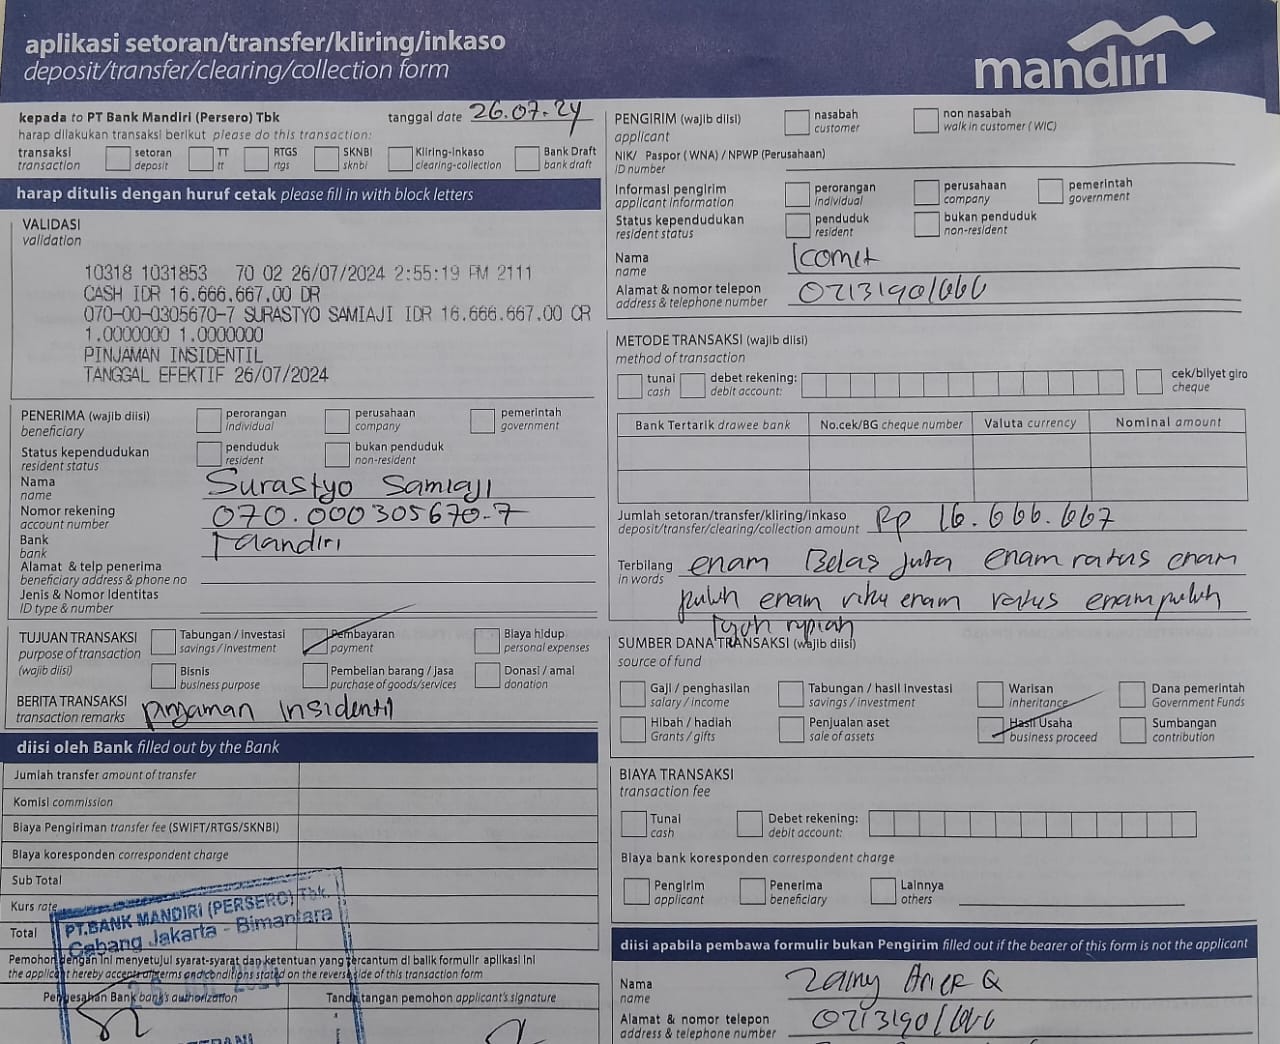 aplikasi setoran/transfer/kliring/inkaso
deposit/transfer/clearing/collection form
mandiri
kepada to PT Bank Mandiri (Persero) Tbk
tanggal date 26.07.24
harap dilakukan transaksi berikut please do this transaction:
transaksi
transaction
setoran
deposit
TT
tt
RTGS
rtgs
SKNBI
sknbi
Kliring-inkaso
clearing-collection
Bank Draft
bank draft
harap ditulis dengan huruf cetak please fill in with block letters
VALIDASI
validation
10318 1031853 70 02 26/07/2024 2:55:19 PM 2111
CASH IDR 16.666.667.00 DR
070-00-0305670-7 SURASTYO SAMIAJI IDR 16.666.667.00 CR
1.0000000 1.0000000
PINJAMAN INSIDENTIL
TANGGAL EFEKTIF 26/07/2024
PENERIMA (wajib diisi)
beneficiary
perorangan
individual
perusahaan
company
pemerintah
government
Status kependudukan
resident status
penduduk
resident
bukan penduduk
non-resident
Nama
name
Surastyo Samiaji
Nomor rekening
account number
070.000305670-7
Bank
bank
Mandiri
Alamat & telp penerima
beneficiary address & phone no
Jenis & Nomor Identitas
ID type & number
TUJUAN TRANSAKSI
purpose of transaction
(wajib diisi)
Tabungan / investasi
savings / investment
Pembayaran
payment
Biaya hidup
personal expenses
Bisnis
business purpose
Pembelian barang / jasa
purchase of goods/services
Donasi / amal
donation
BERITA TRANSAKSI
transaction remarks
pinjaman Insidentil
diisi oleh Bank filled out by the Bank
Jumlah transfer amount of transfer
Komisi commission
Biaya Pengiriman transfer fee (SWIFT/RTGS/SKNBI)
Biaya koresponden correspondent charge
Sub Total
Kurs rate
Total
PT.BANK MANDIRI (PERSERO) Tbk.
Cabang Jakarta - Bimantara
Pemohon dengan ini menyetujui syarat-syarat dan ketentuan yang tercantum di balik formulir aplikasi ini
the applicant hereby accepts terms and conditions stated on the reverse side of this transaction form
Pengesahan Bank bank's authorization
Tanda tangan pemohon applicant's signature
PENGIRIM (wajib diisi)
applicant
nasabah
customer
non nasabah
walk in customer (WIC)
NIK/ Paspor (WNA) / NPWP (Perusahaan)
ID number
Informasi pengirim
applicant information
perorangan
individual
perusahaan
company
pemerintah
government
Status kependudukan
resident status
penduduk
resident
bukan penduduk
non-resident
Nama
name
Alamat & nomor telepon
address & telephone number
02131901666
METODE TRANSAKSI (wajib diisi)
method of transaction
tunai
cash
debet rekening:
debit account:
cek/bilyet giro
cheque
Bank Tertarik drawee bank
No.cek/BG cheque number
Valuta currency
Nominal amount
Jumlah setoran/transfer/kliring/inkaso
deposit/transfer/clearing/collection amount
Rp 16.666.667
Terbilang
in words
enam Belas juta enam ratus enam
puluh enam ribu enam ratus enam puluh
tujuh rupiah
SUMBER DANA TRANSAKSI (wajib diisi)
source of fund
Gaji / penghasilan
salary / income
Tabungan / hasil investasi
savings / investment
Warisan
inheritance
Dana pemerintah
Government Funds
Hibah / hadiah
Grants / gifts
Penjualan aset
sale of assets
Hasil Usaha
business proceed
Sumbangan
contribution
BIAYA TRANSAKSI
transaction fee
Tunai
cash
Debet rekening:
debit account:
Biaya bank koresponden correspondent charge
Pengirim
applicant
Penerima
beneficiary
Lainnya
others
diisi apabila pembawa formulir bukan Pengirim filled out if the bearer of this form is not the applicant
Nama
name
Alamat & nomor telepon
address & telephone number
02131901666